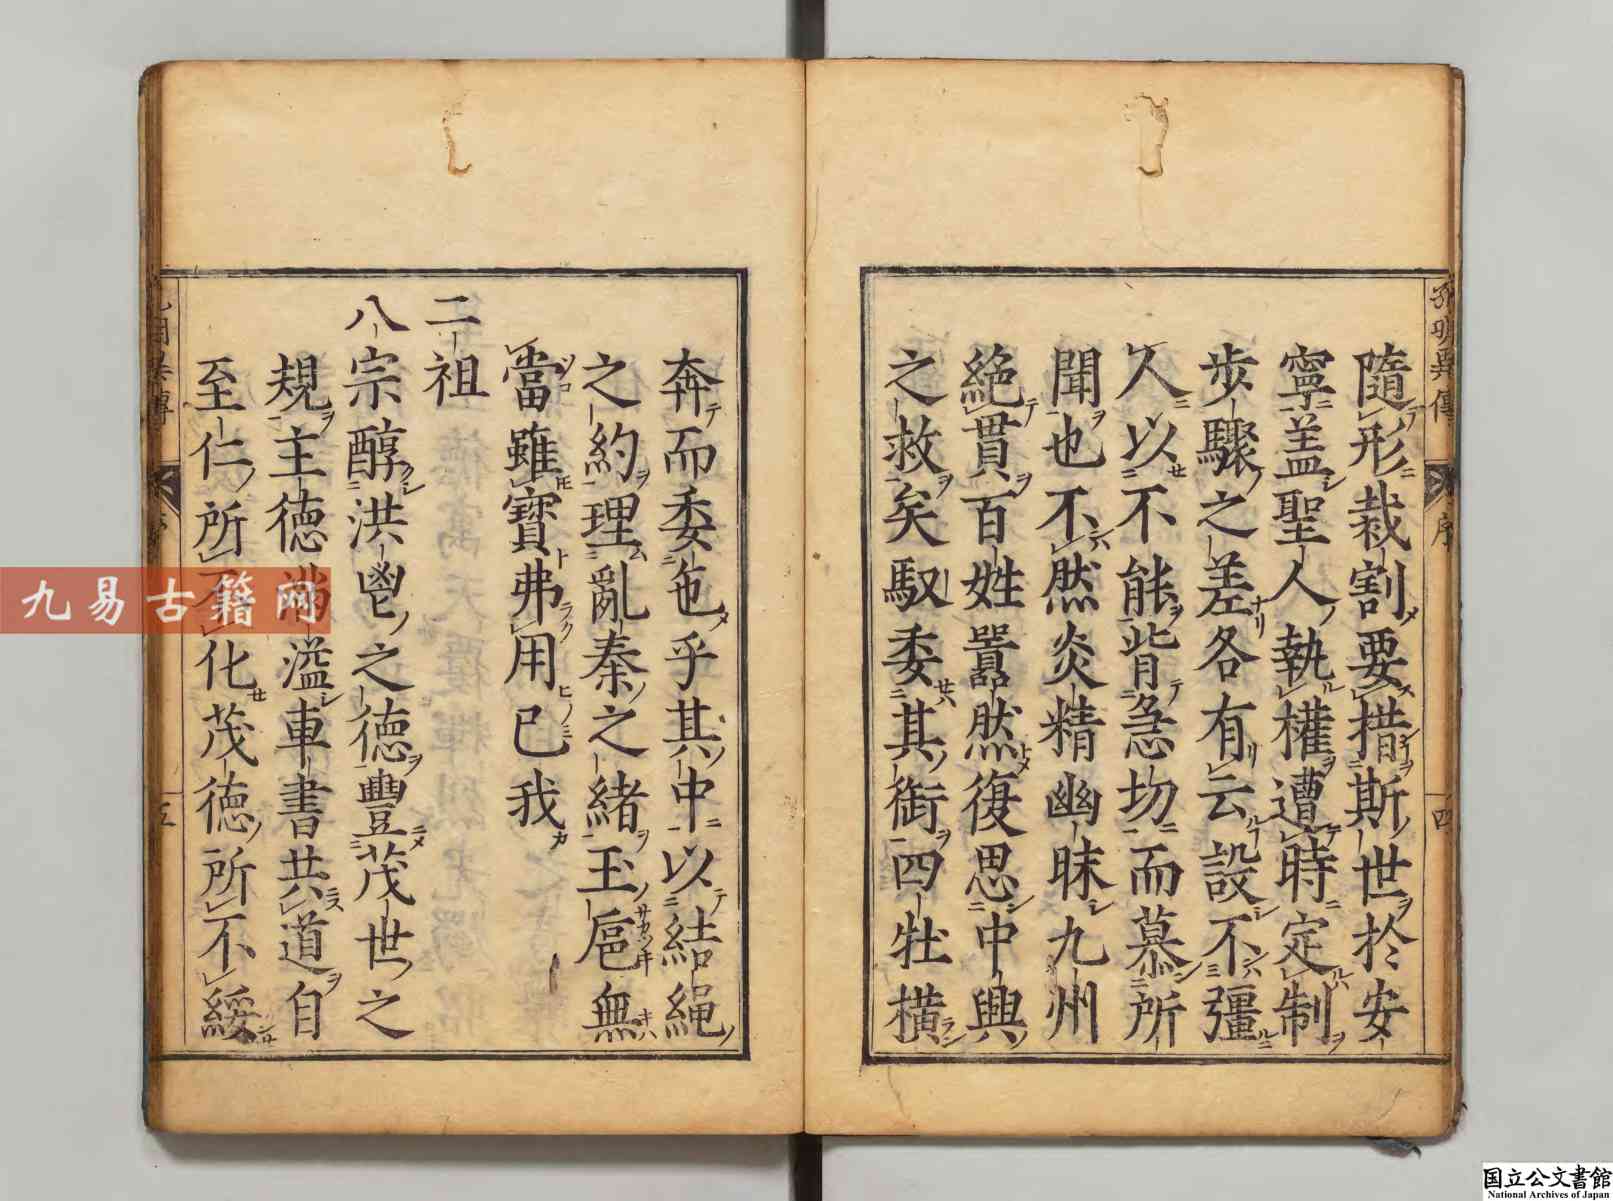 孔明異傳
序
四
隨形裁割要措斯世於安
寧蓋聖人執權遭時定制
歩驟之差各有云設不彊
人以不能背急切而慕所
聞也不然炎精幽昧九州
絶貫百姓嚣然復思中興
之救矣馭委其銜四牡横
奔而委㐌乎其中以結繩
之約理亂秦之緒玉巵無
當雖寳弗用已我
二祖
八宗醇洪鬯之德豐茂世之
規主德
溢車書共道自
至仁所不化茂德所不綏
五
九易古籍网
国立公文書館
National Archives of Japan